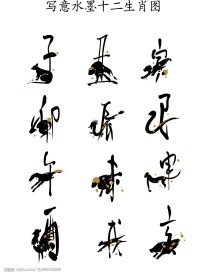 写意水墨十二生肖图
子 丑 寅
卯 辰 巳
午 未 申
酉 戌 亥